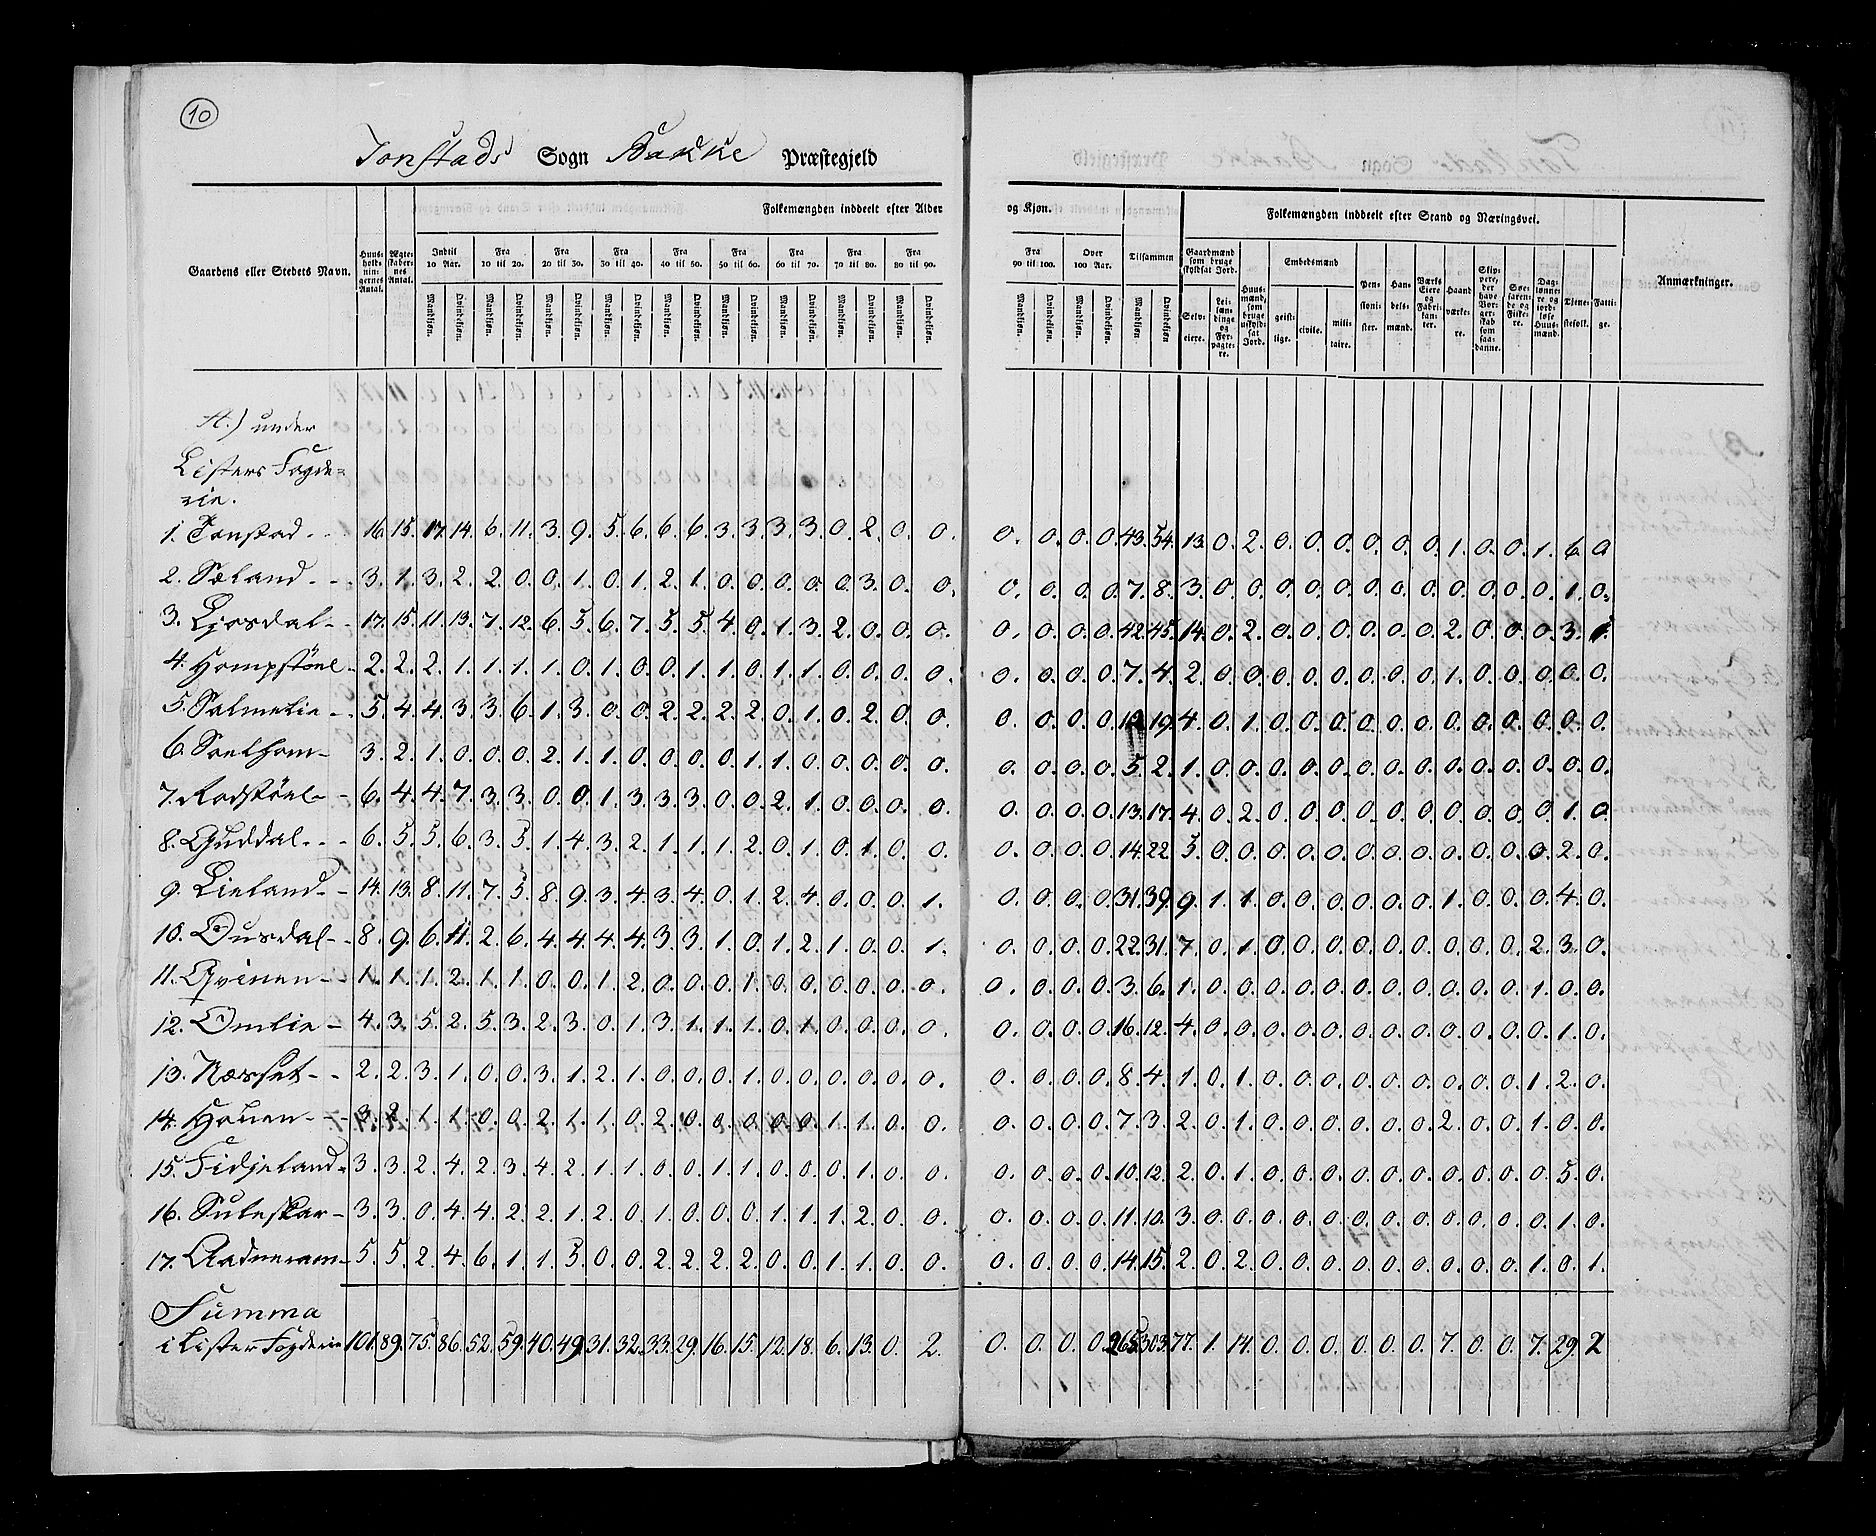 10
Tonstads Sogn Bakke Præstegjeld
Gaardens eller Stedets Navn. Huusholdningernes Antal. Ægteskabernes Antal. Folkemængden inddeelt efter Alder og Kjøn. Folkemængden inddeelt efter Stand og Næringsvei. Anmærkninger.
Indtil 10 Aar. Fra 10 til 20. Fra 20 til 30. Fra 30 til 40. Fra 40 til 50. Fra 50 til 60. Fra 60 til 70. Fra 70 til 80. Fra 80 til 90. Fra 90 til 100. Over 100 Aar. Tilsammen Gaardmænd som bruge skyldsat Jord. Huusmænd, som bruge uskyldsat Jord. Embedsmænd Pensionister. Handelsmænd. Værks Eiere og Fabrikanter. Haandværkere. Skippere, der have Borgerskab som saadanne. Søefarende og Fiskere. Daglønnere og jordløse Huusmænd. Tjenestefolk. Fattige.
Mandkjøn. Qvindekjøn. Mandkjøn. Qvindekjøn. Mandkjøn. Qvindekjøn. Mandkjøn. Qvindekjøn. Mandkjøn. Qvindekjøn. Mandkjøn. Qvindekjøn. Mandkjøn. Qvindekjøn. Mandkjøn. Qvindekjøn. Mandkjøn. Qvindekjøn. Mandkjøn. Qvindekjøn. Mandkjøn. Qvindekjøn. Mandkjøn. Qvindekjøn. Selveiere. Leilændinge og Forpagtere. geistlige. civile. militaire.
A.) under
Listers Fogde=
rie.
1. Tonstad. - 16. 15. 17. 14. 6. 11. 3. 9. 5. 6. 6. 6. 3. 3. 3. 3. 0. 2. 0. 0. 0. 0. 0. 0. 43. 54. 13. 0. 2. 0. 0. 0. 0. 0. 0. 1. 0. 0. 1. 6. 0
2. Sæland - - 3. 1. 3. 2. 2. 0. 0. 1. 0. 1. 2. 1. 0. 0. 0. 0. 0. 3. 0. 0. 0. 0. 0. 0. 7. 8. 3. 0. 0. 0. 0. 0. 0. 0. 0. 0. 0. 0. 0. 1. 0.
3. Ljosdal - 17. 15. 11. 13. 7. 12. 6. 5. 6. 7. 5. 5. 4. 0. 1. 3. 2. 0. 0. 0. 0. 0. 0. 0. 42. 45. 14. 0. 2. 0. 0. 0. 0. 0. 0. 2. 0. 0. 0. 3. 1.
4. Hompstøel - 2. 2. 2. 1. 1. 1. 1. 0. 1. 0. 0. 1. 1. 0. 1. 1. 0. 0. 0. 0. 0. 0. 0. 0. 7. 4. 2. 0. 0. 0. 0. 0. 0. 0. 0. 1. 0. 0. 0. 0. 0.
5. Salmelie - 5. 4. 4. 3. 3. 6. 1. 3. 0. 0. 2. 2. 2. 2. 0. 1. 0. 2. 0. 0. 0. 0. 0. 0. 12. 19. 4. 0. 1. 0. 0. 0. 0. 0. 0. 0. 0. 0. 0. 0. 0.
6. Soelhom - 3. 2. 1. 0. 0. 0. 2. 1. 1. 0. 0. 0. 0. 1. 1. 0. 0. 0. 0. 0. 0. 0. 0. 0. 5. 2. 1. 0. 0. 0. 0. 0. 0. 0. 0. 0. 0. 0. 0. 0. 0.
7. Rodstøel - 6. 4. 4. 7. 3. 3. 0. 0. 1. 3. 3. 3. 0. 0. 2. 1. 0. 0. 0. 0. 0. 0. 0. 0. 13. 17. 4. 0. 2. 0. 0. 0. 0. 0. 0. 0. 0. 0. 0. 1. 0
8. Guddal - - 6. 5. 5. 6. 3. 5. 1. 4. 3. 2. 1. 1. 1. 2. 0. 1. 0. 1. 0. 0. 0. 0. 0. 0. 14. 22. 5. 0. 0. 0. 0. 0. 0. 0. 0. 0. 0. 0. 0. 2. 0.
9. Lieland - - 14. 13. 8. 11. 7. 5. 8. 9. 3. 4. 3. 4. 0. 1. 2. 4. 0. 0. 0. 1. 0. 0. 0. 0. 31. 39. 9. 1. 1. 0. 0. 0. 0. 0. 0. 1. 0. 0. 0. 4. 0.
10. Ousdal - - 8. 9. 6. 11. 2. 6. 4. 4. 4. 4. 3. 3. 1. 0. 1. 2. 1. 0. 0. 1. 0. 0. 0. 0. 22. 31. 7. 0. 1. 0. 0. 0. 0. 0. 0. 0. 0. 0. 2. 3. 0.
11. Qvinen - - 1. 1. 1. 2. 1. 1. 0. 0. 1. 2. 0. 0. 0. 1. 0. 0. 0. 0. 0. 0. 0. 0. 0. 0. 3. 6. 1. 0. 0. 0. 0. 0. 0. 0. 0. 0. 0. 0. 1. 0. 0.
12. Omlie - 4. 3. 5. 2. 5. 3. 2. 3. 0. 1. 3. 1. 1. 1. 0. 1. 0. 0. 0. 0. 0. 0. 0. 0. 16. 12. 4. 0. 0. 0. 0. 0. 0. 0. 0. 0. 0. 0. 0. 1. 0.
13. Næsset - - 2. 2. 3. 1. 0. 0. 3. 1. 2. 1. 0. 0. 0. 1. 0. 0. 0. 0. 0. 0. 0. 0. 0. 0. 8. 4. 1. 0. 1. 0. 0. 0. 0. 0. 0. 0. 0. 0. 1. 2. 0.
14. Houen - - 3. 2. 1. 1. 0. 0. 2. 1. 1. 0. 2. 0. 0. 0. 0. 0. 1. 1. 0. 0. 0. 0. 0. 0. 7. 3. 2. 0. 1. 0. 0. 0. 0. 0. 0. 2. 0. 0. 1. 0. 0.
15. Fidjeland - 3. 3. 2. 4. 2. 3. 4. 2. 1. 1. 0. 0. 1. 1. 0. 0. 0. 1. 0. 0. 0. 0. 0. 0. 10. 12. 2. 0. 1. 0. 0. 0. 0. 0. 0. 0. 0. 0. 0. 5. 0.
16. Suleskar - 3. 3. 0. 4. 4. 2. 2. 1. 2. 0. 1. 0. 0. 0. 1. 1. 1. 2. 0. 0. 0. 0. 0. 0. 11. 10. 3. 0. 0. 0. 0. 0. 0. 0. 0. 0. 0. 0. 0. 1. 0.
17. Aadneram - 5. 5. 2. 4. 6. 1. 1. 5. 0. 0. 2. 2. 2. 2. 0. 0. 1. 1. 0. 0. 0. 0. 0. 0. 14. 15. 2. 0. 2. 0. 0. 0. 0. 0. 0. 0. 0. 0. 1. 0. 1.
Summa
i Lister Fogderie 101. 89. 75. 86. 52. 59. 40. 49. 31. 32. 33. 29. 16. 15. 12. 18. 6. 13. 0. 2. 0. 0. 0. 0. 265. 303. 77. 1. 14. 0. 0. 0. 0. 0. 0. 7. 0. 0. 7. 29. 2